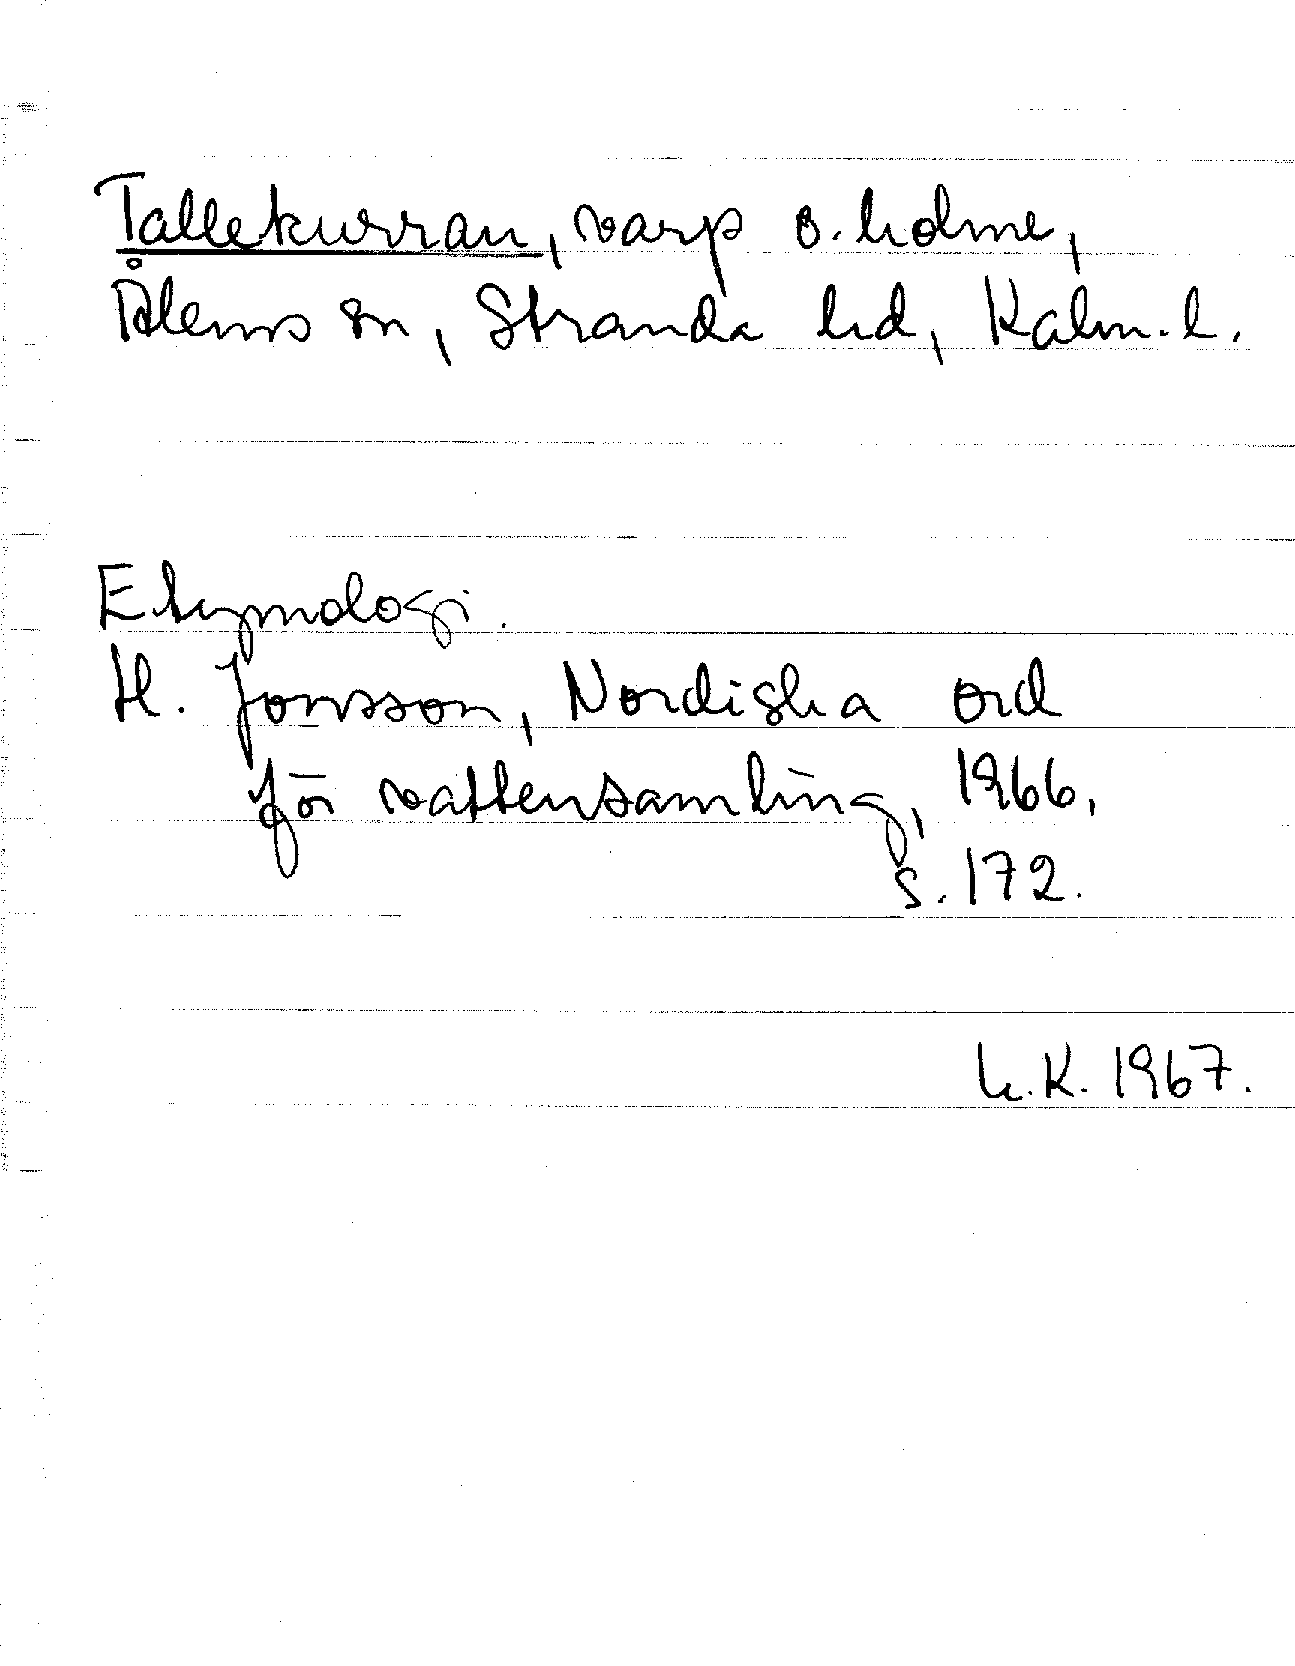 Tallekurran, varp o. holme,
Ålems sn, Stranda hd, Kalm. l.
Etymologi.
H. Jonsson, Nordiska ord
för vattensamling, 1966,
s. 172.
h.K. 1967.